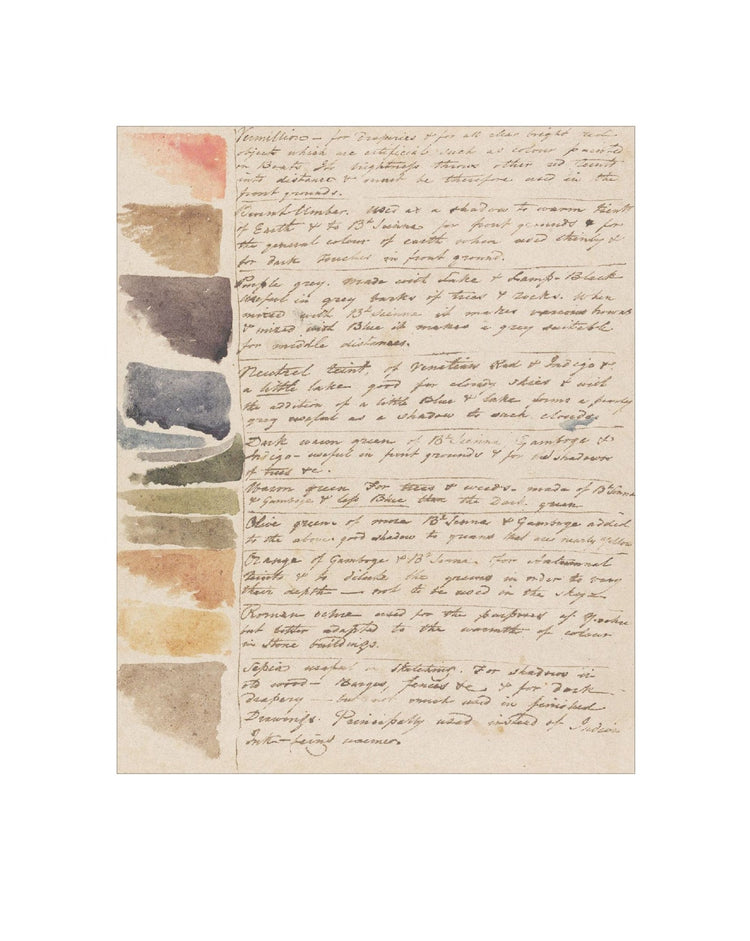 Vermillion – for Draperies & for all clear bright red
objects which are artificial such as colour painted
on Boats. Its brightness throws other red teints
into distance & must be therefore used in the
front grounds.
Burnt Umber. used as a shadow to warm teints
of Earth & to Bt Sienna for front grounds & for
the general colour of earth when used thinly &
for dark touches in front ground.
Purple grey. made with Lake & Lamp-Black
useful in grey barks of trees & rocks. When
mixed with Bt Sienna it makes various browns
& mixed with Blue it makes a grey suitable
for middle distances.
Neutral teint, of Venetian Red & Indigo &
a little lake good for cloudy skies & with
the addition of a little Blue & lake forms a pearly
grey useful as a shadow to such clouds.
Dark warm green of Bt Sienna Gamboge &
Indigo – useful in front grounds & for the shadows
of trees &c.
Warm green For trees & weeds. made of Bt Senna
& Gamboge & less Blue than the Dark green
Olive green of more Bt Senna & Gamboge added
to the above good shadow to greens that are nearly yellow
Orange of Gamboge & Bt Senna. for Autumnal
teints & to the greens in order to vary
their depth — not to be used in the Sky.
Roman ochre used for the purposes of
but better adapted to the warmth of colour
in stone buildings.
Sepia useful in sketching. For shadows in
old wood – Barges, fences &c & for dark
drapery – but not much used in finished
Drawings. Principally used instead of Indian
Ink – being warmer.